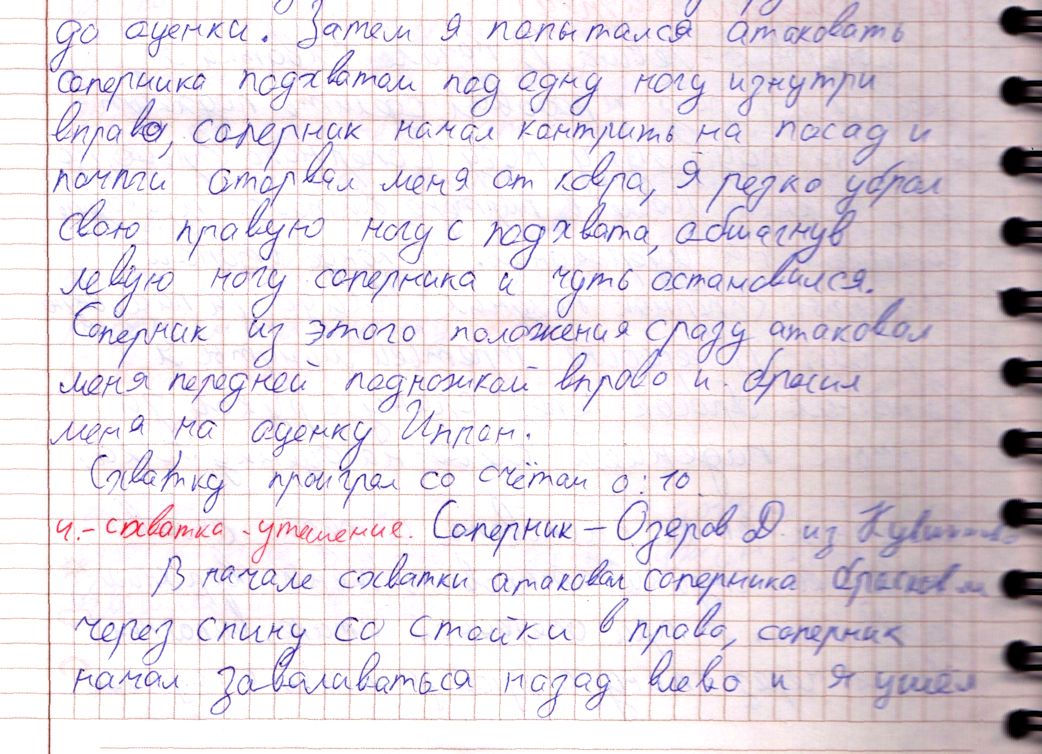 до оценки. Затем я попытался атаковать
соперника подхватом под одну ногу изнутри
вправо, соперник начал контрить на посад и
почти оторвал меня от ковра, Я резко убрал
свою правую ногу с подхвата, обшагнув
левую ногу соперника и чуть остановился.
Соперник из этого положения сразу атаковал
меня передней подножкой вправо и бросил
меня на оценку Иппон.
Схватку проиграл со счётом 0:10.
4.- схватка - утешение. Соперник - Озеров Д. из
В начале схватки атаковал соперника броском
через спину со стойки вправо, соперник
начал заваливаться назад влево и я ушёл